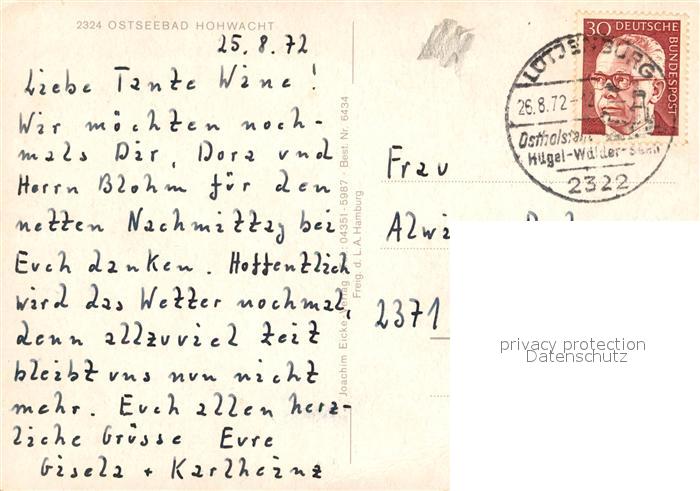 2324 OSTSEEBAD HOHWACHT
25.8.72
Liebe Tante Wine!
Wir möchten noch-
mals Dir, Dora und
Herrn Blohm für den
netten Nachmittag bei
Euch danken. Hoffentlich
wird das Wetter nochmal,
denn allzuviel Zeit
bleibt uns nun nicht
mehr. Euch allen herz-
liche Grüsse Eure
Gisela + Karlheinz
Joachim Eicke, Verlag
: 04351-5987 · Best. Nr. 6434
Freig. d. L.A. Hamburg
30 DEUTSCHE
BUNDESPOST
LÜTJENBURG
26.8.72-
Ostholstein
Hügel-Wälder-Seen
2322
Frau
Alwi
2371
privacy protection
Datenschutz